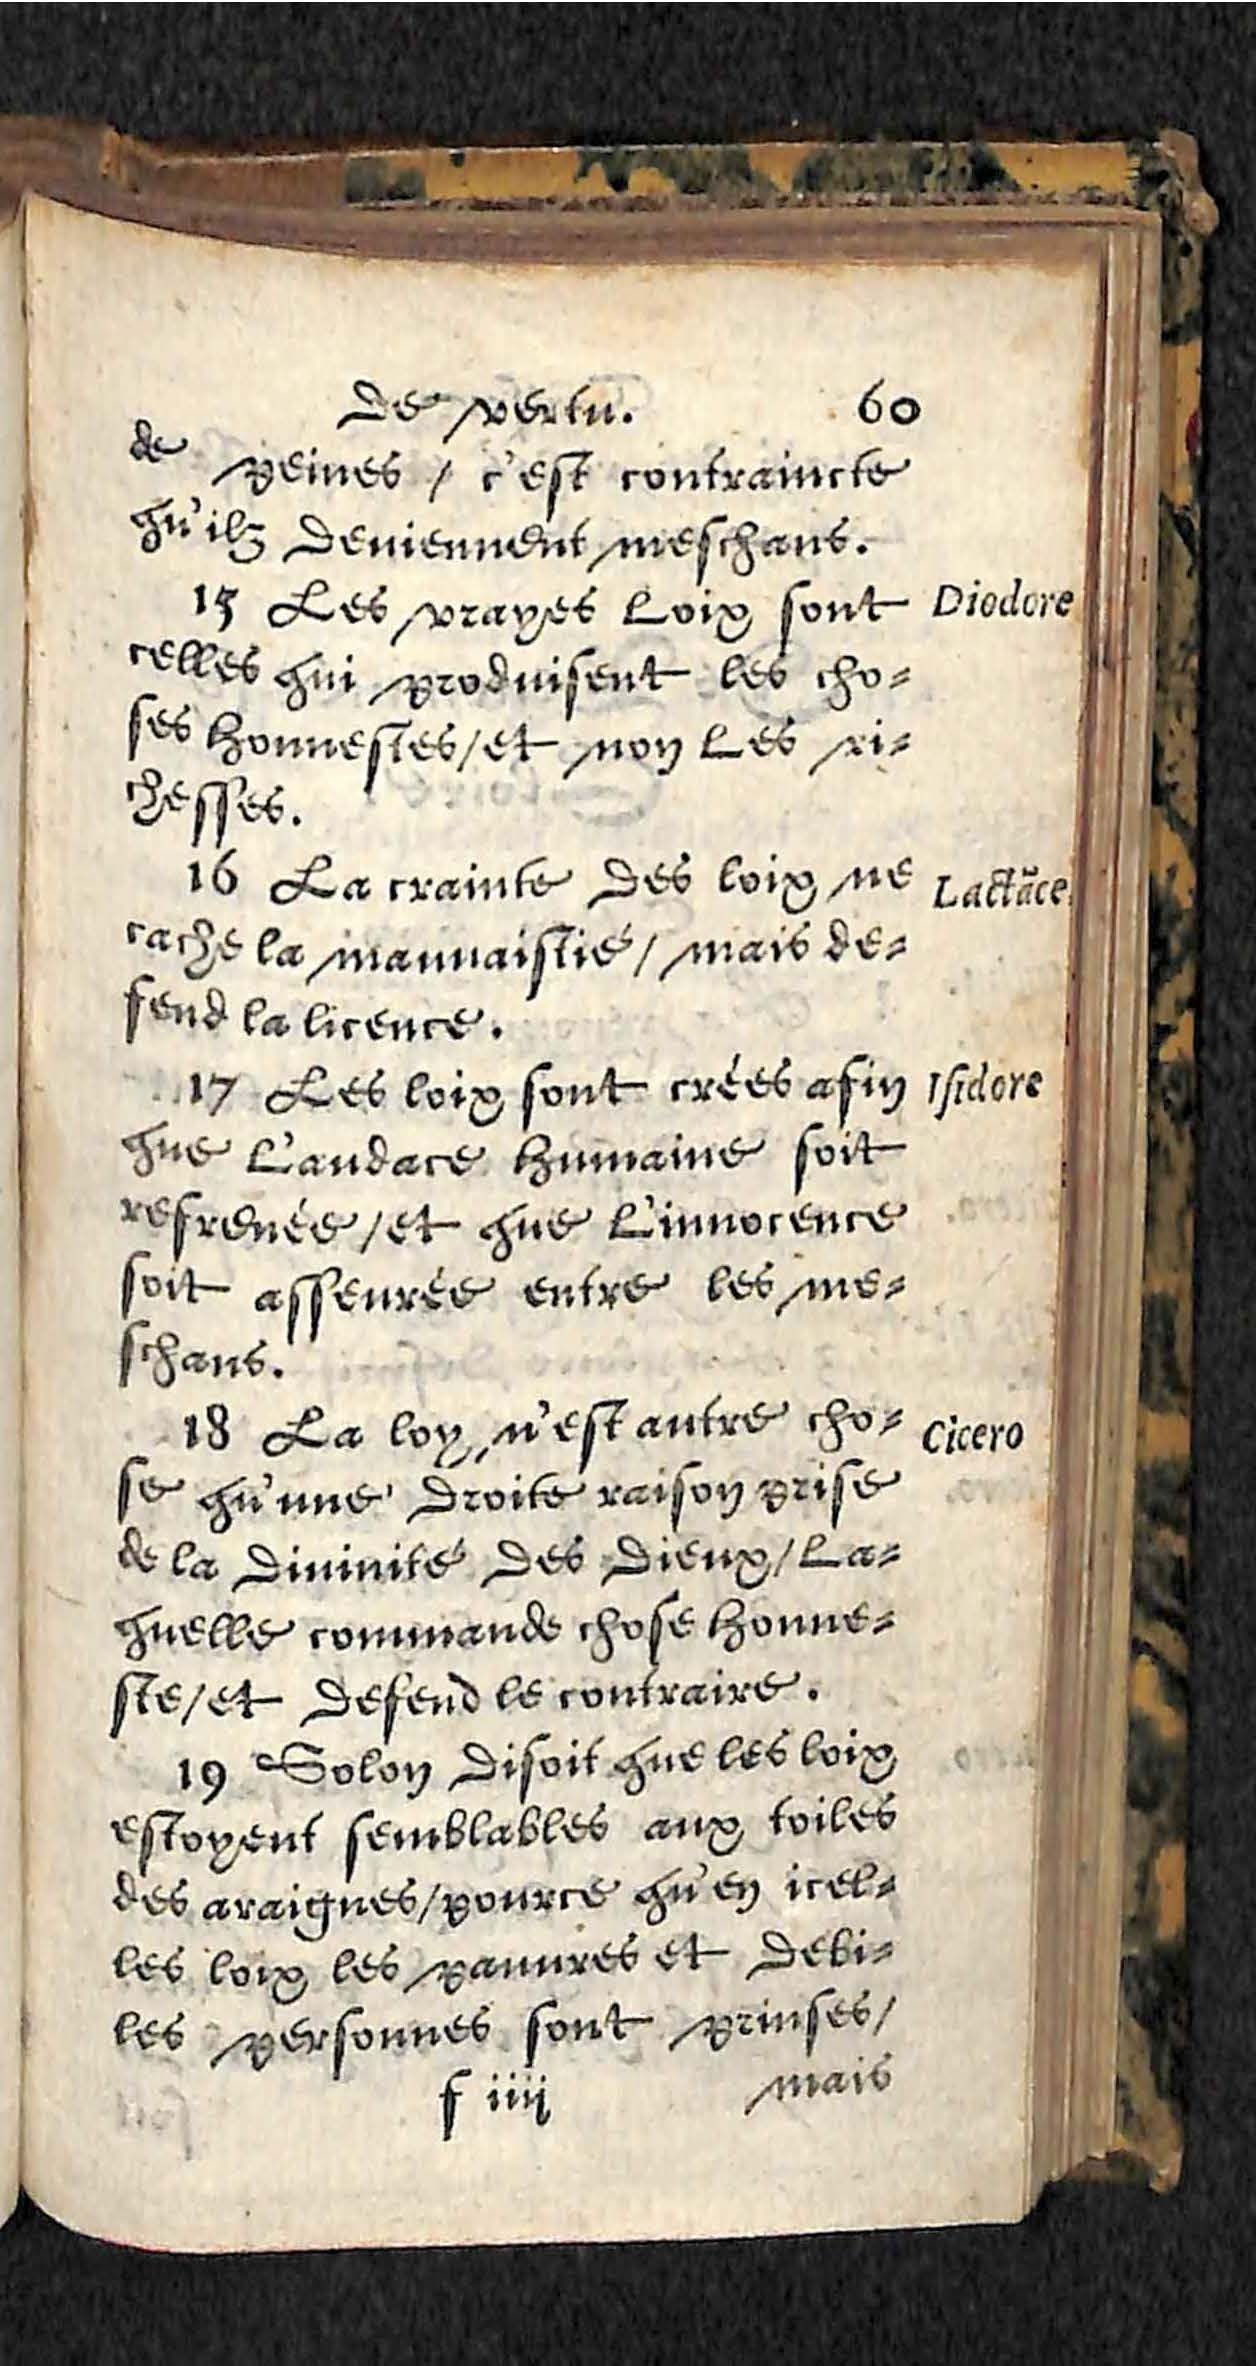 de vertu. 60
de peines / c'est contraincte
qu'ilz deuiennent meschans.
15 Les vrayes loix sont Diodore
celles qui produisent les cho-
ses honnestes / et non les ri-
chesses.
16 La crainte des loix ne Lactāce.
cache la mauuaistié / mais de-
fend la licence.
17 Les loix sont crées afin Isidore
que l'audace humaine soit
refrenée / et que l'innocence
soit asseurée entre les me-
schans.
18 La loy n'est autre cho- Cicero
se qu'une droite raison prise
de la diuinité des dieux / la-
quelle commande chose honne-
ste / et defend le contraire.
19 Solon disoit que les loix
estoyent semblables aux toiles
des araignes / pource qu'en icel-
les loix les pauures et debi-
les personnes sont prinses /
f iiij mais